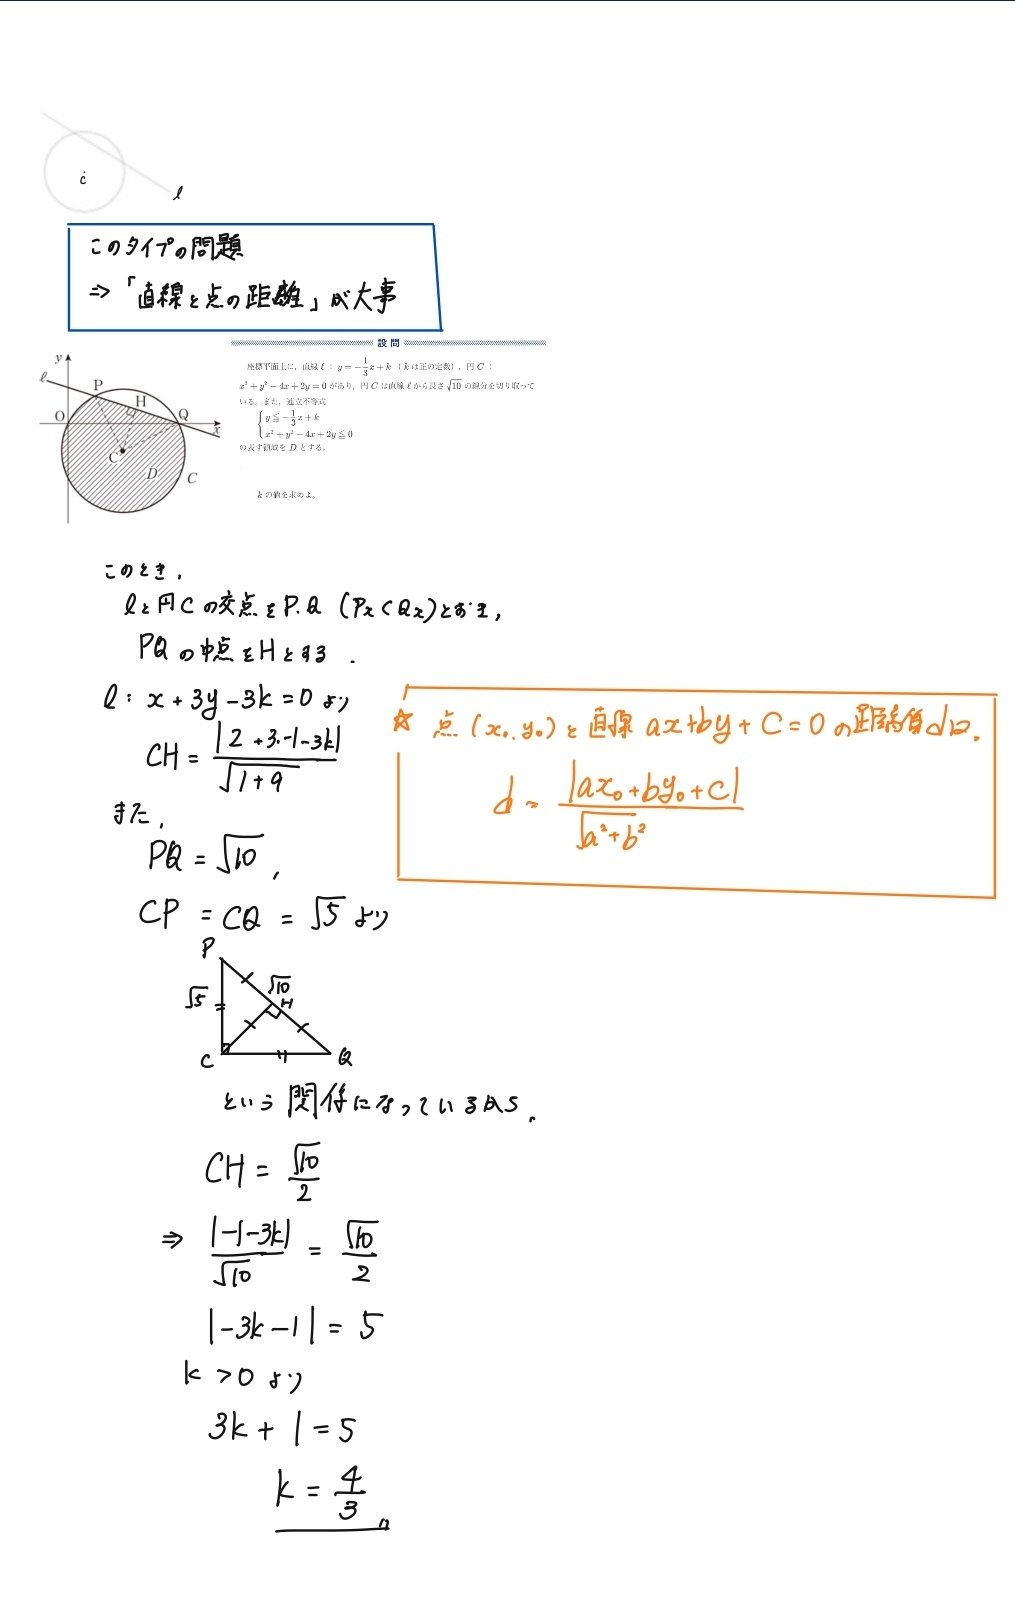 C
ℓ
このタイプの問題
⇒「直線と点の距離」が大事
設問
座標平面上に、直線 ℓ：y=-1/3x+k（k は正の定数）、円 C：
x²+y²-4x+2y=0 があり、円 C は直線 ℓ から長さ √10 の線分を切り取って
いる。また、連立不等式
y≦-1/3x+k
x²+y²-4x+2y≦0
の表す領域を D とする。
k の値を求めよ。
y
ℓ
P
H
O
Q
x
C
D
C
このとき,
ℓと円Cの交点をP.Q (Px<Qx)とおき,
PQの中点をHとする.
ℓ: x+3y-3k=0 より
CH = |2+3·-1-3k|/√(1+9)
また,
PQ = √10,
CP = CQ = √5 より
☆ 点(x₀,y₀)と直線 ax+by+C=0の
は.
d = |ax₀+by₀+C|/√(a²+b²)
P
√5
√10
H
C
Q
という関係になっているから,
CH = √10/2
⇒ |-1-3k|/√10 = √10/2
|-3k-1| = 5
k>0 より
3k+1=5
k = 4/3 〃